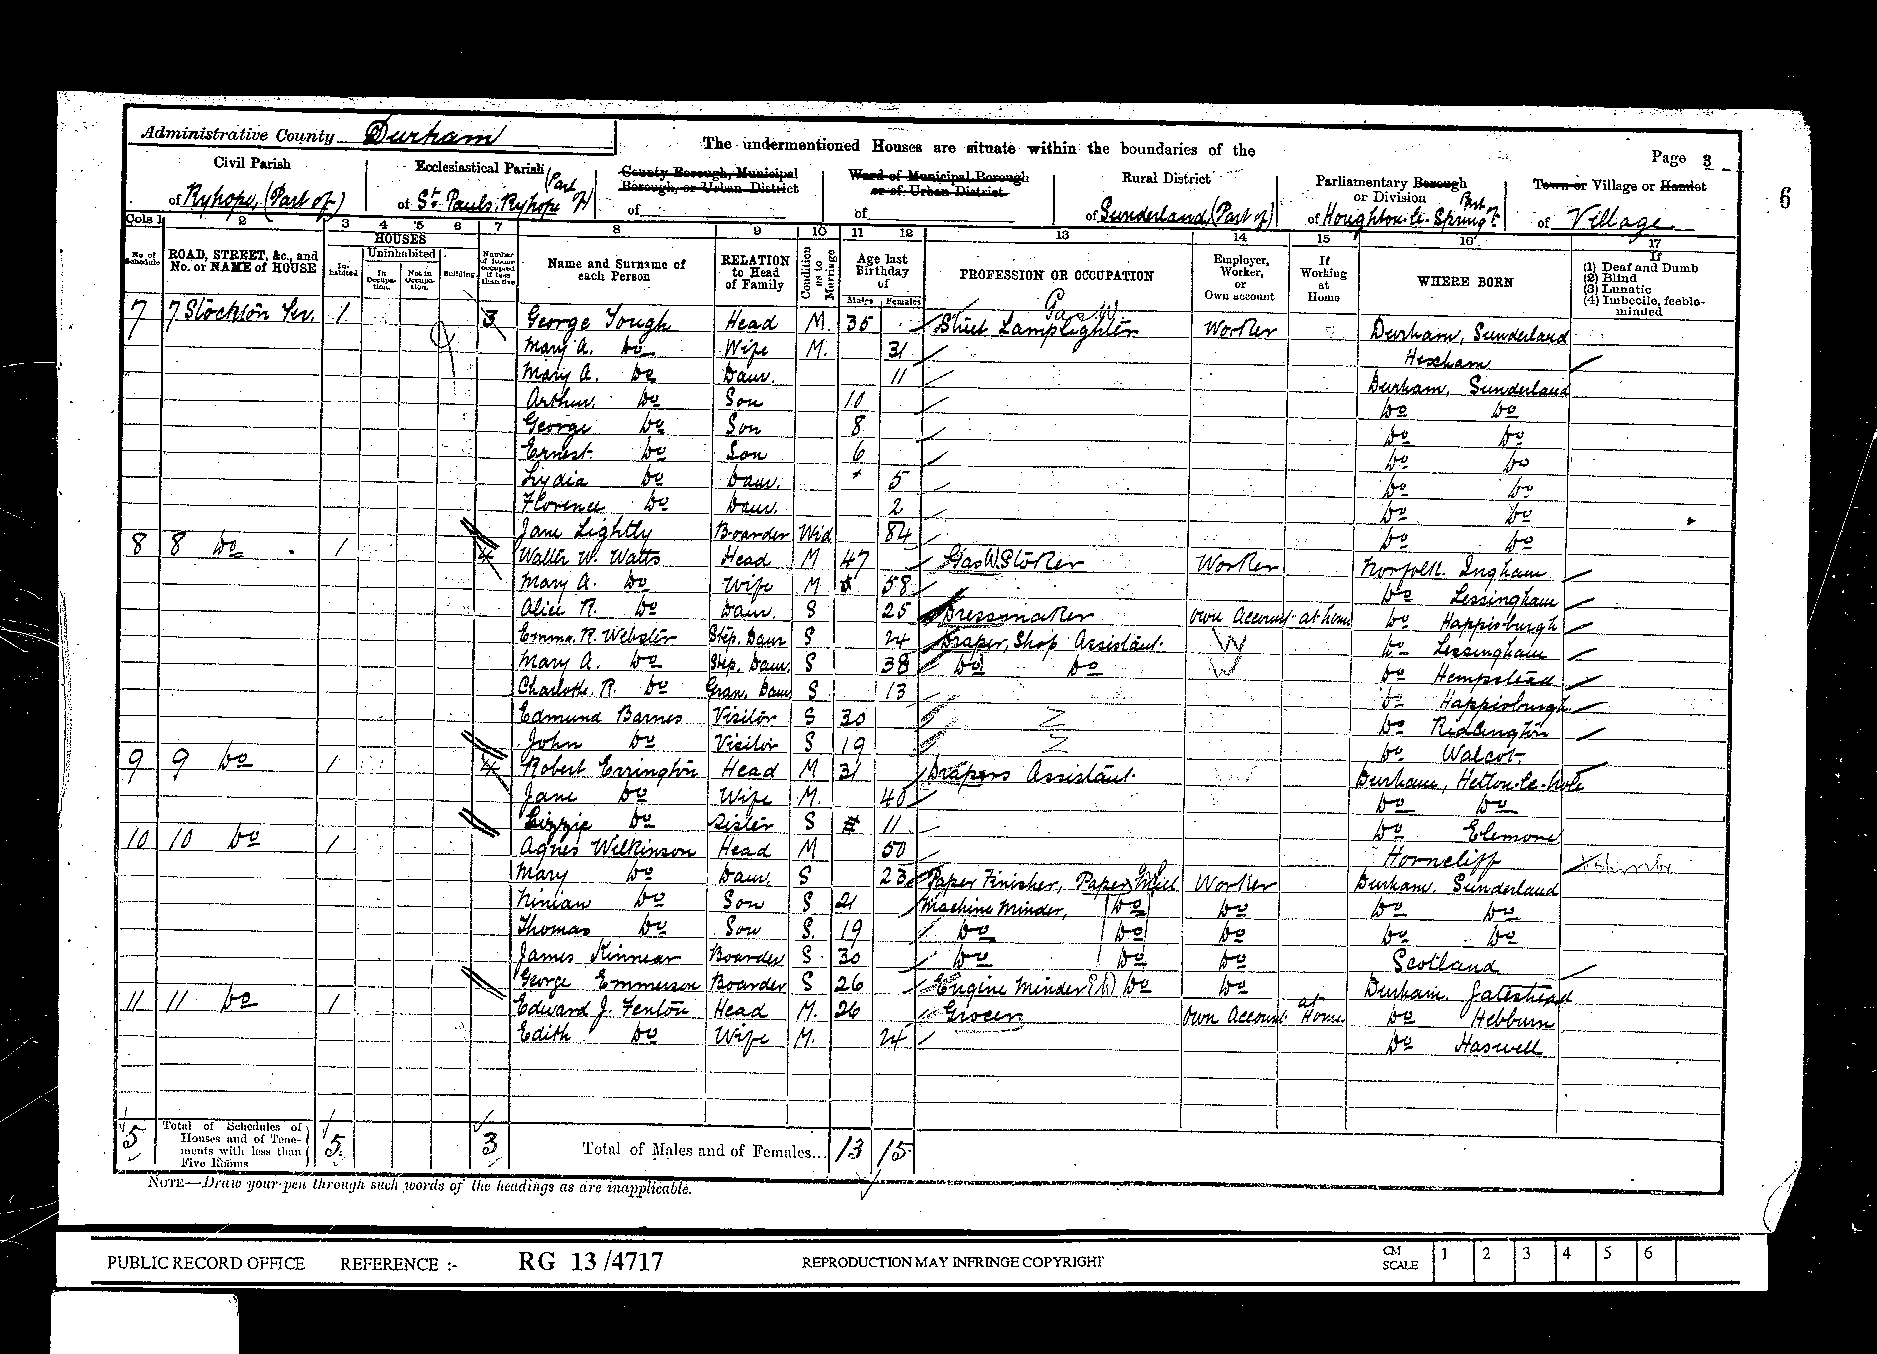 Administrative County Durham
The undermentioned Houses are situate within the boundaries of the
Page 3
6
Civil Parish
of Ryhope, (Part of)
Ecclesiastical Parish
of St Pauls. Ryhope (Part of)
County Borough, Municipal Borough, or Urban District
of
Ward of Municipal Borough or of Urban District
of
Rural District
of Sunderland (Part of)
Parliamentary Borough or Division
of Houghton-le-Spring Part of
Town or Village or Hamlet
of Village
Cols 1 2 3 4 5 6 7 8 9 10 11 12 13 14 15 16 17
No. of Schedule
ROAD, STREET, &c., and No. or NAME of HOUSE
HOUSES
Inhabited
Uninhabited
In Occupation.
Not in Occupation.
Building
Number of rooms occupied if less than five
Name and Surname of each Person
RELATION to Head of Family
Condition as to Marriage
Age last Birthday of
Males Females
PROFESSION OR OCCUPATION
Employer, Worker, or Own account
If Working at Home
WHERE BORN
If
(1) Deaf and Dumb
(2) Blind
(3) Lunatic
(4) Imbecile, feeble-minded
7 7 Stockton Ter. 1 3 George Tough Head M 35 Street Lamplighter Gas W. Worker Durham, Sunderland
Mary A. Do Wife M. 31 Hexham
Mary A. Do Daur. 11 Durham, Sunderland
Arthur. Do Son 10 Do Do
George Do Son 8 Do Do
Ernest. Do Son 6 Do Do
Lydia Do Daur. 5 Do Do
Florence Do Daur. 2 Do Do
Jane Lightly Boarder Wid 84 Do Do
8 8 Do 1 4 Walter W. Watts Head M 47 Gas W. Stoker Worker Norfolk Ingham
Mary A. Do Wife M 58 Do Lessingham
Alice R. Do Daur. S 25 Dressmaker Own Account at home Do Happisburgh
Emma. R. Webster Step. Daur S 24 Draper, Shop Assistant. W Do Lessingham
Mary A. Do Step. Daur. S 38 Do Do W Do Hempstead
Charlotte. R. Do Gran. Daur S 13 Do Happisburgh
Edmund Barnes Visitor S 30 Do Riddington
John Do Visitor S 19 Do Walcot
9 9 Do 1 4 Robert Errington Head M 31 Drapers Assistant. Durham, Hetton-le-hole
Jane Do Wife M. 40 Do Do
Lizzie Do Sister S 11 Do Elemore
10 10 Do 1 Agnes Wilkinson Head M 50 Horncliff
Mary Do Daur. S 23 Paper Finisher, Paper Mill Worker Durham, Sunderland
Ninian Do Son S 21 Machine Minder, Do Do Do Do
Thomas Do Son S. 19 Do Do Do Do Do
James Kinnear Boarder S 30 Do Do Do Scotland
George Emmerson Boarder S 26 Engine Minder Do Do Durham. Gateshead
11 11 Do 1 Edward J. Fenton Head M. 26 Grocer Own Account at Home Do Hebburn
Edith Do Wife M. 24 Do Haswell
5 Total of Schedules of Houses and of Tenements with less than Five Rooms 5 3 Total of Males and of Females... 13 15
NOTE—Draw your pen through such words of the headings as are inapplicable.
PUBLIC RECORD OFFICE REFERENCE :- RG 13/4717 REPRODUCTION MAY INFRINGE COPYRIGHT CM SCALE 1 2 3 4 5 6